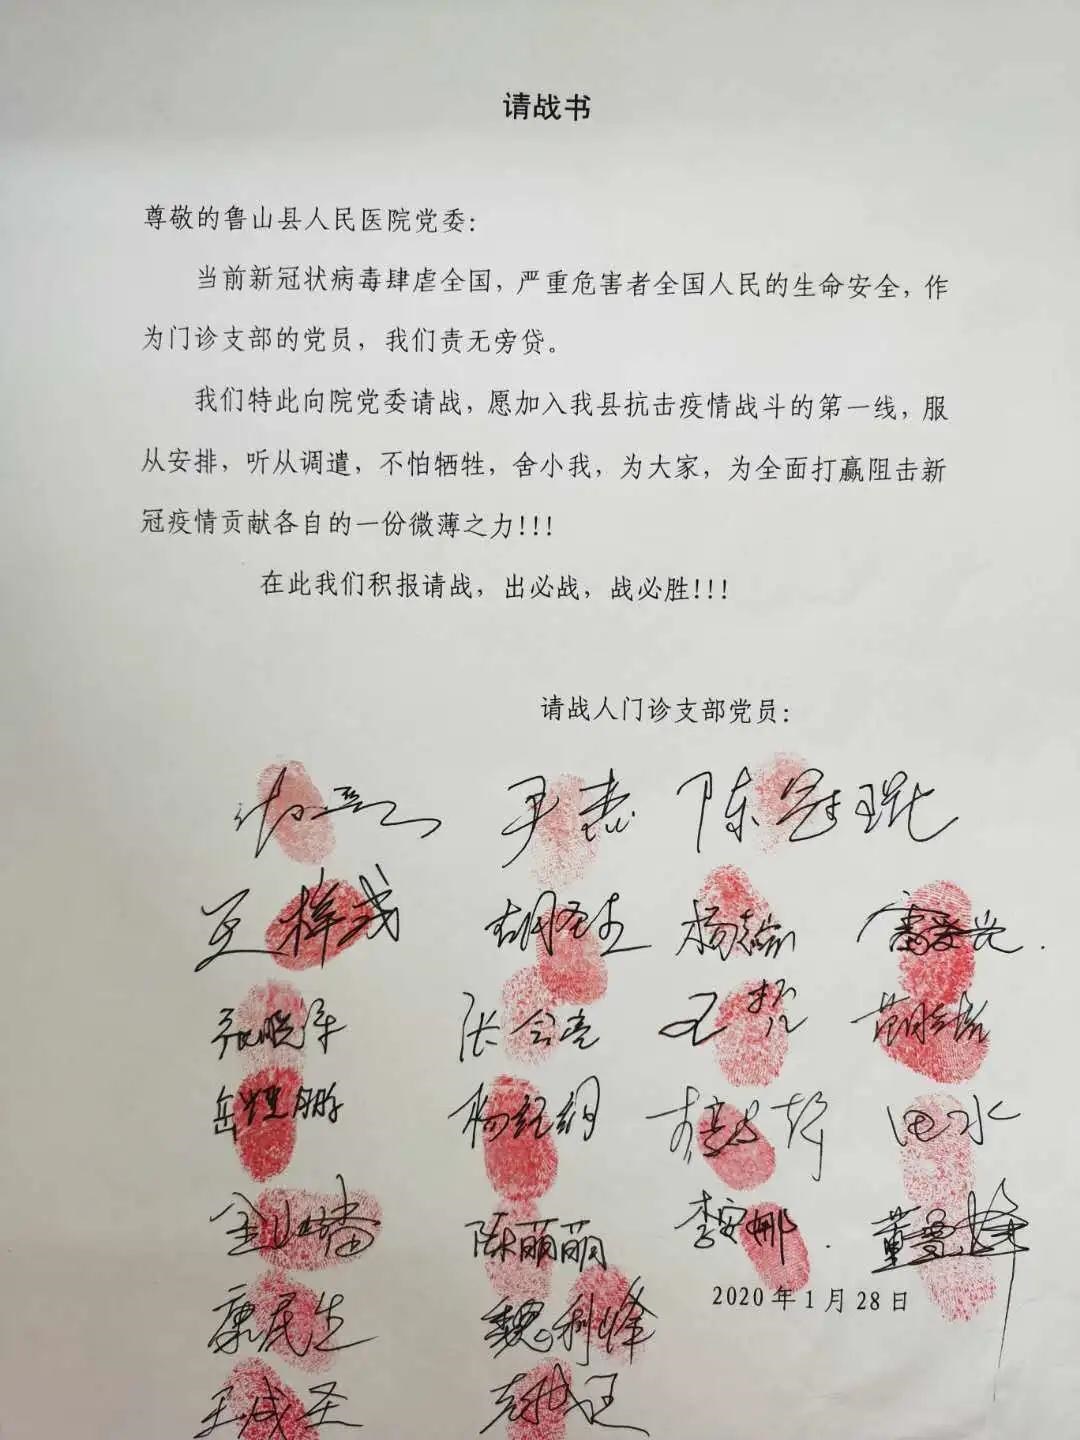 请战书
尊敬的鲁山县人民医院党委：
当前新冠状病毒肆虐全国，严重危害者全国人民的生命安全，作
为门诊支部的党员，我们责无旁贷。
我们特此向院党委请战，愿加入我县抗击疫情战斗的第一线，服
从安排，听从调遣，不怕牺牲，舍小我，为大家，为全面打赢阻击新
冠疫情贡献各自的一份微薄之力！！！
在此我们积报请战，出必战，战必胜！！！
请战人门诊支部党员：
陈冠琨
张会亮
杨纪纲 田水
陈萌萌 李安娜
2020年1月28日
康民生 魏利峰
王成圣